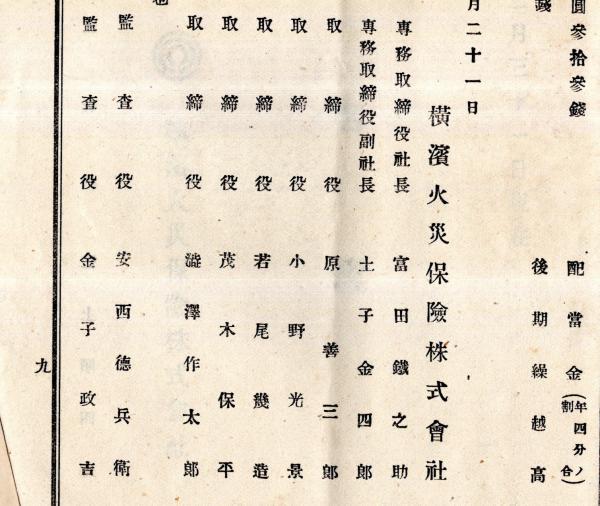 圓參拾參錢
配當金(年四分ノ割合)
錢
後期繰越高
月二十一日
横濱火災保險株式會社
専務取締役社長 富田鐵之助
専務取締役副社長 土子金四郎
取締役 原善三郎
取締役 小野光景
取締役 若尾幾造
取締役 茂木保平
取締役 澁澤作太郎
監査役 安西德兵衛
監査役 金子政吉
九